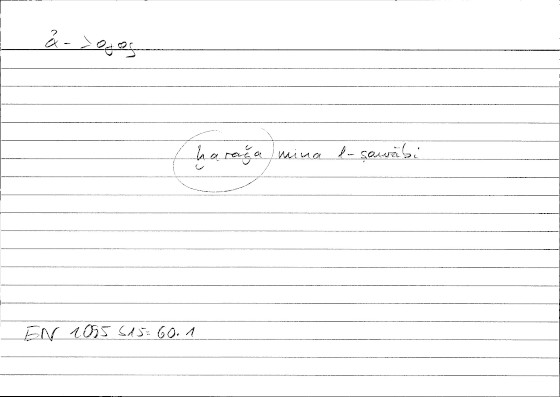 ἄ-λογος
ḫaraǧa mina l-ṣawābi
EN 1055 b15 = 60.1